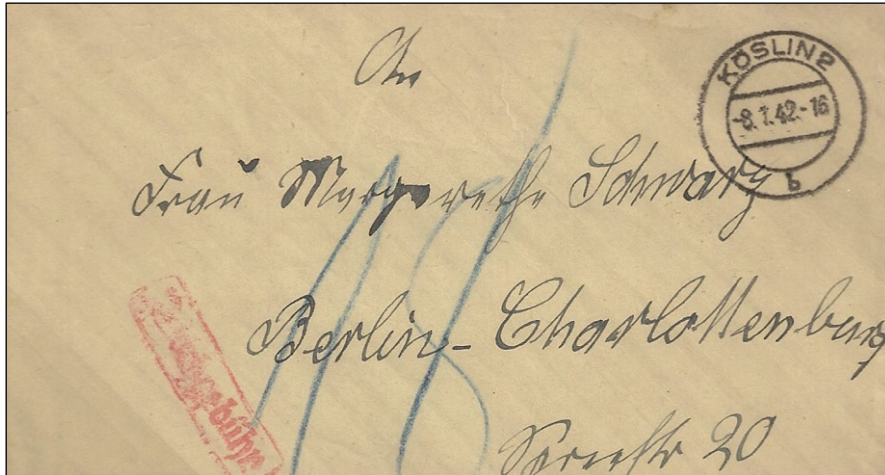 An
KÖSLIN 2
-8.1.42.-16
b
Frau Margarethe Schwarz
Berlin-Charlottenburg
Spreestr 20